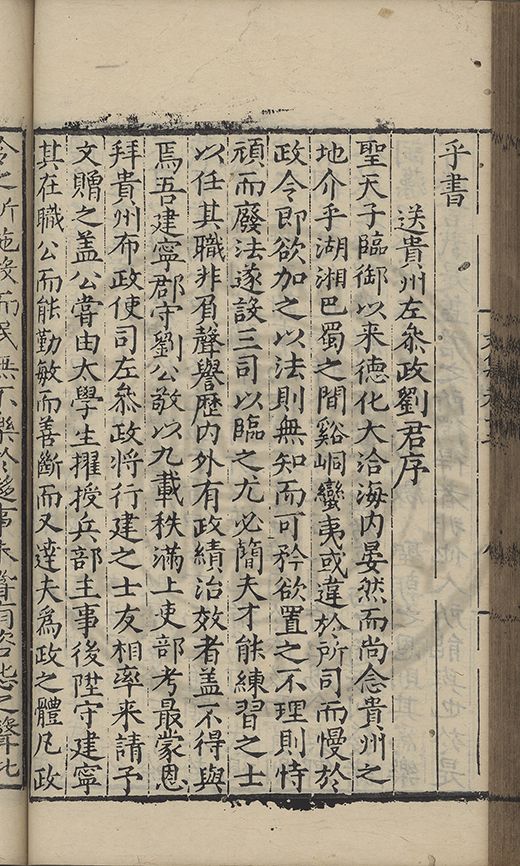 乎書
送貴州左叅政劉君序
聖天子臨御以来德化大洽海内晏然而尚念貴州之
地介乎湖湘巴蜀之間谿峒蠻夷或違於所司而慢於
政令即欲加之以法則無知而可矜欲置之不理則恃
頑而廢法遂設三司以臨之尤必簡夫才能練習之士
以任其職非有聲譽歴内外有政績治效者盖不得與
焉吾建寧郡守劉公敬以九載秩滿上吏部考最蒙恩
拜貴州布政使司左叅政将行建之士友相率来請予
文贈之盖公嘗由太學生擢授兵部主事後陞守建寧
其在職公而能勤敏而善斷而又達夫為政之體凡政